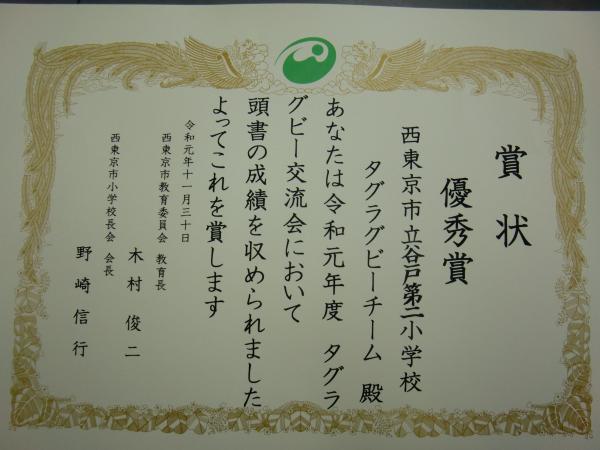 賞状
優秀賞
西東京市立谷戸第二小学校
タグラグビーチーム 殿
あなたは令和元年度 タグラ
グビー交流会において
頭書の成績を収められました
よってこれを賞します
令和元年十一月三十日
西東京市教育委員会 教育長
木村俊二
西東京市小学校長会 会長
野崎信行